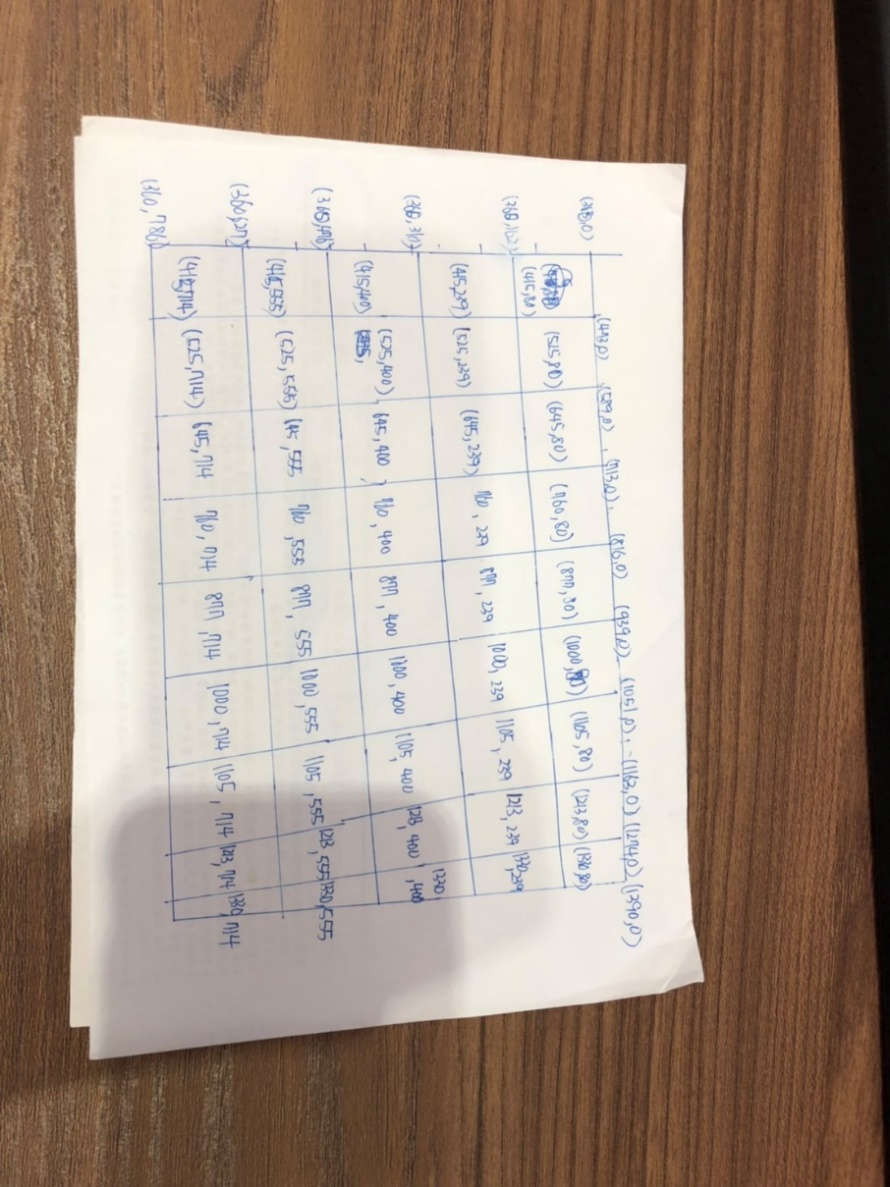 (473,0) (589,0) (713,0) (819,0) (939,0) (1051,0) (1163,0) (1274,0) (1390,0)
(415,80) (525,80) (645,80) (760,80) (877,80) (1000,80) (1105,80) (1213,80) (1330,80)
(415,239) (525,239) (645,239) 760, 239 877, 239 1000, 239 1105, 239 1213, 239 1330,239
(415,400) (525,400) 645, 400 760, 400 877, 400 1000, 400 1105, 400 128, 400 1330, 400
(415,555) (525,555) 645, 555 760, 555 877, 555 1000, 555 1105, 555 128, 555 1330,555
(360,786) (415,714) (525,714) 645,714 760, 714 877, 714 1000, 714 1105, 714 123, 714 1330, 714